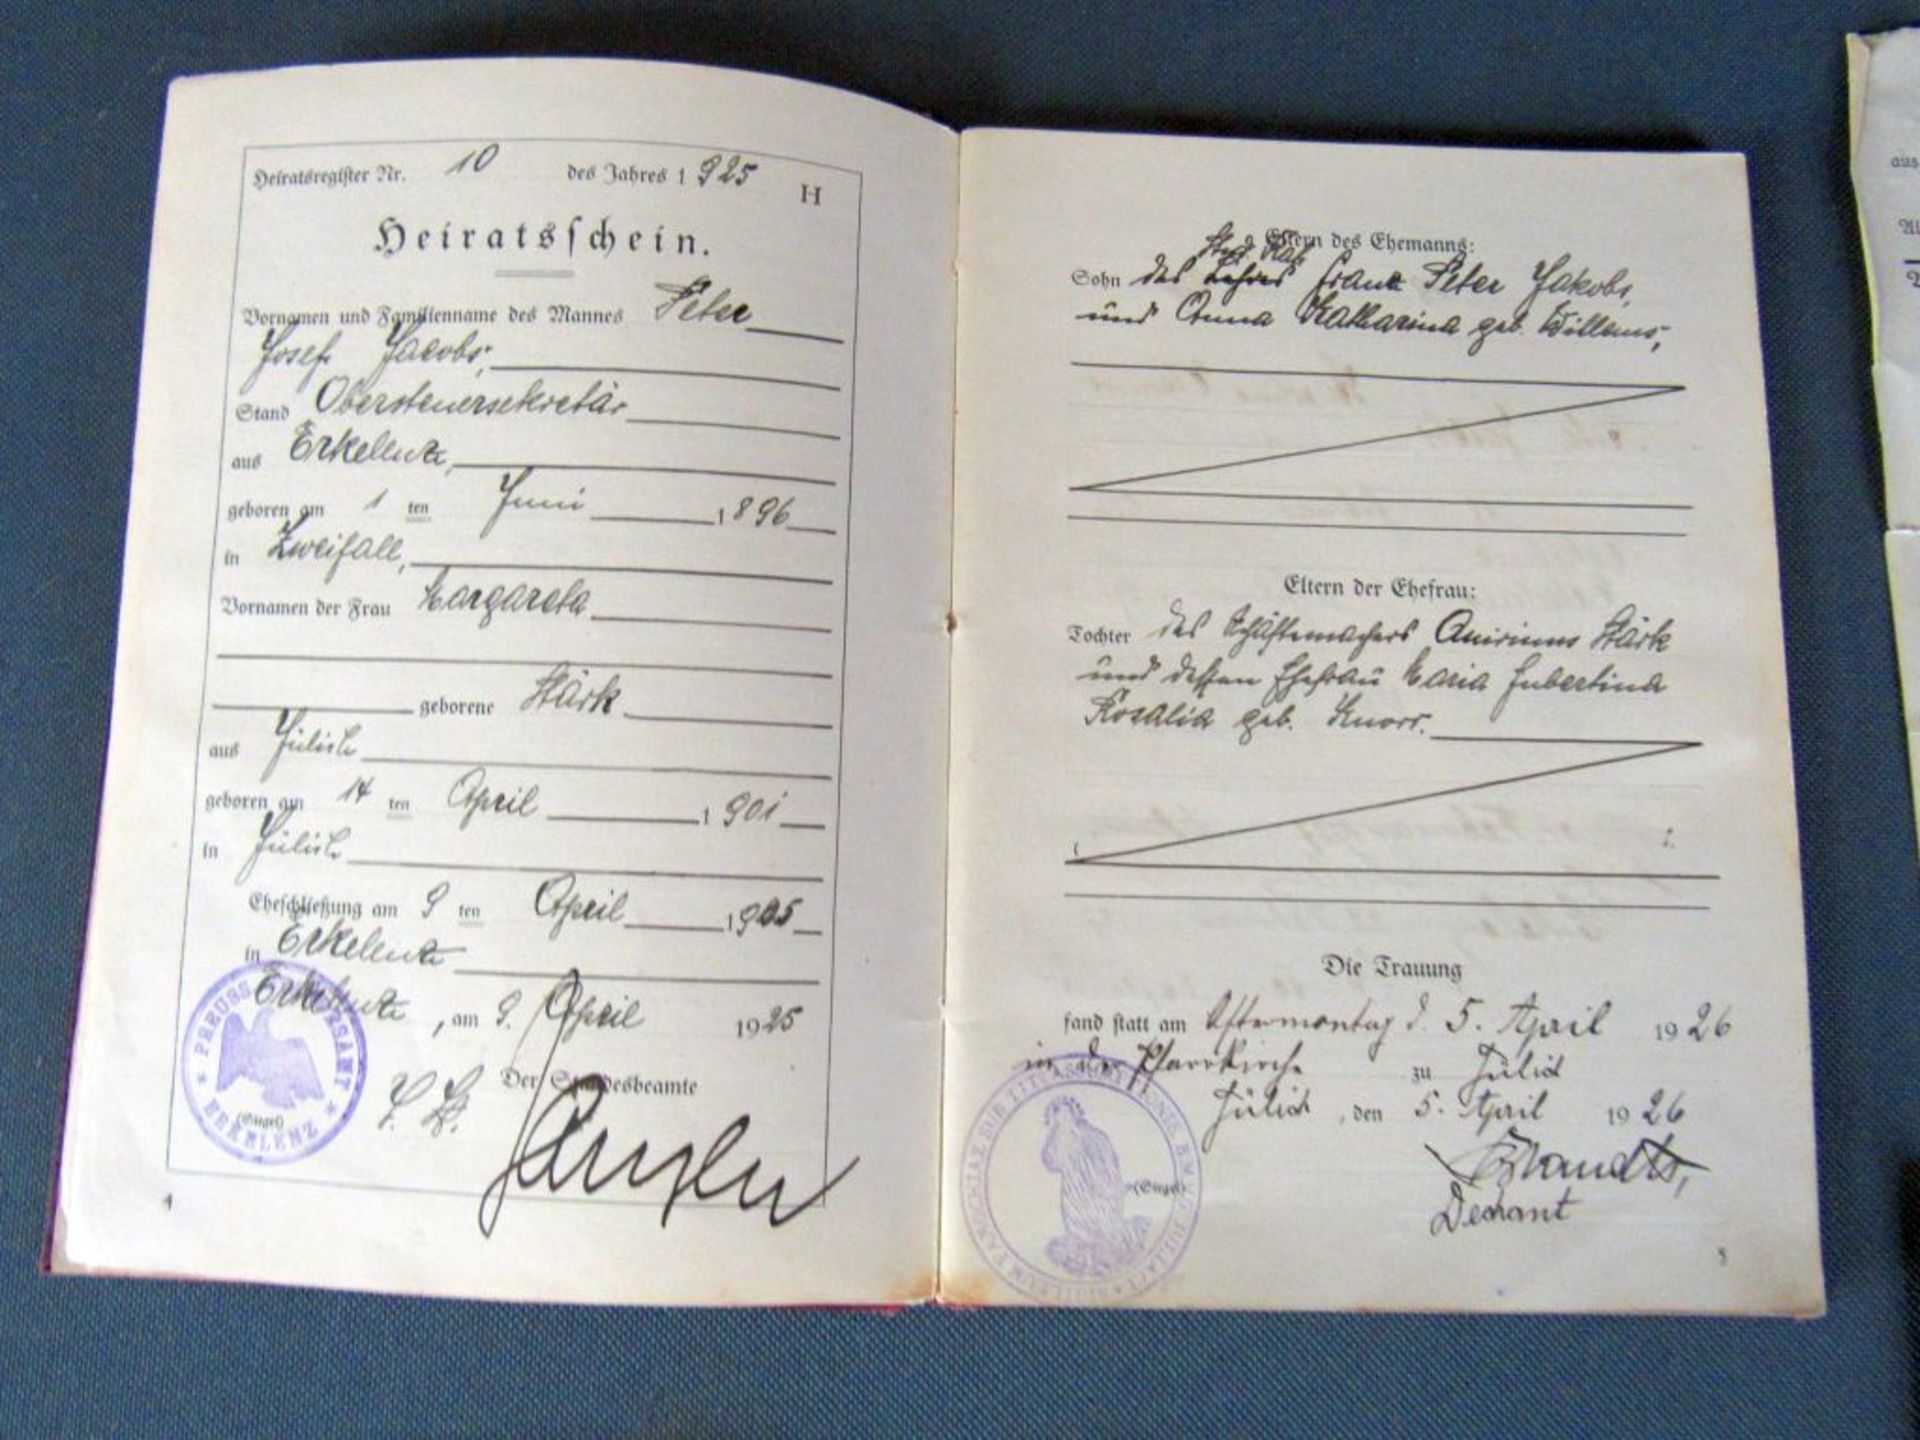 Heiratsregister Nr. 10 des Jahres 1925
H
Heiratsschein.
Vornamen und Familienname des Mannes Peter
Josef Jacobs,
Stand Obersteuersekretär
aus Erkelenz,
geboren am 1 ten Juni 1896
in Zweifall,
Vornamen der Frau Margareta
geborene Stärk
aus Jülich
geboren am 14 ten April 1901
in Jülich
Eheschließung am 9 ten April 1925
in Erkelenz
Erkelenz, am 9. April 1925
Der Standesbeamte
(Siegel)
PREUSS. STANDESAMT
ERKELENZ
4
Eltern des Ehemanns:
Sohn des Franz Peter Jakobs,
und Anna Katharina geb. Willems,
Eltern der Ehefrau:
Tochter des Schäftemachers Quirinus Stärk
und dessen Ehefrau Maria Hubertina
Rosalia geb. Knorr.
Die Trauung
fand statt am Ostermontag d. 5. April 1926
in der Pfarrkirche zu Jülich
Jülich, den 5. April 1926
(Siegel)
Dechant
5
aus